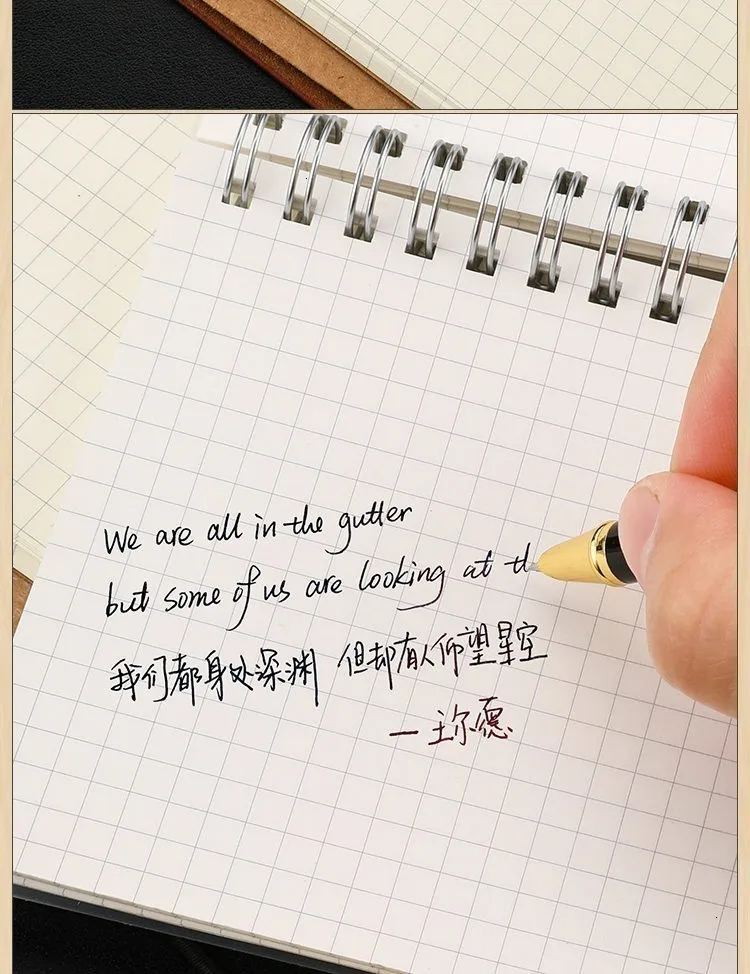 We are all in the gutter
but some of us are looking at th
我们都身处深渊 但却有人仰望星空
— 王尔德